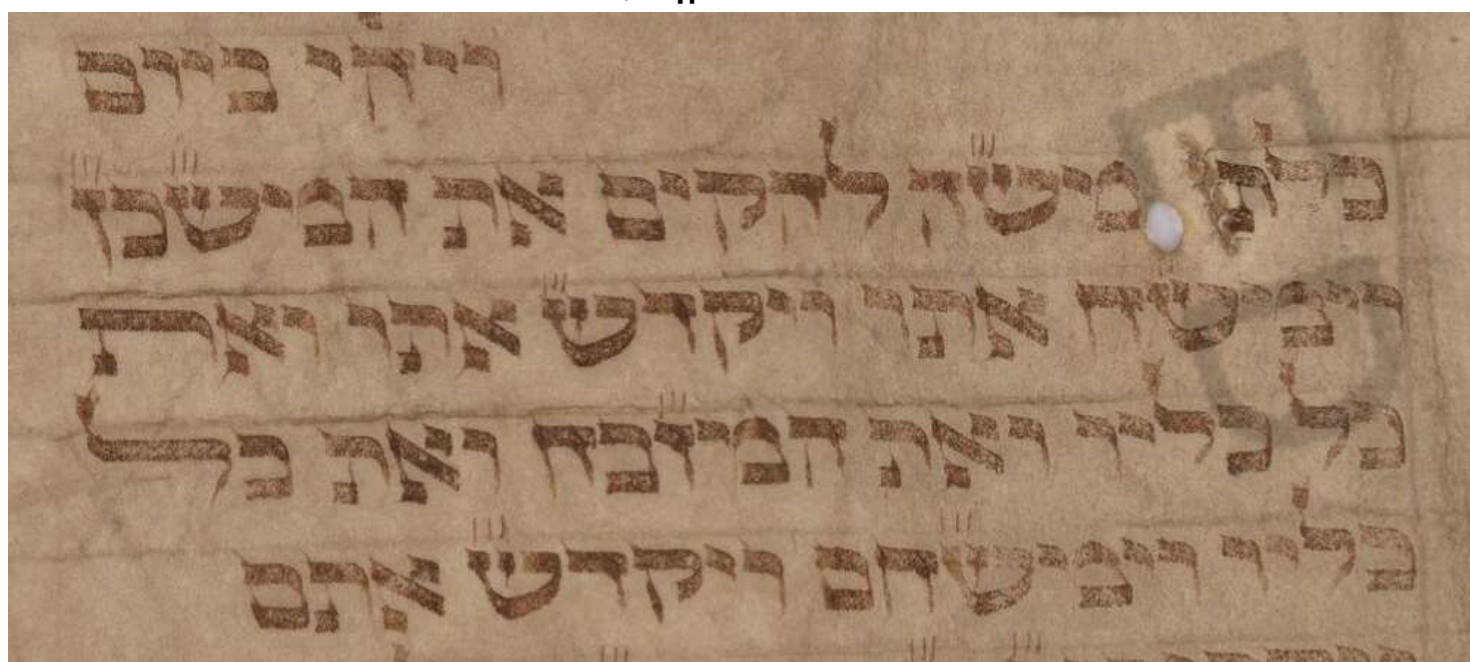 ויהי ביום
כלת משה להקים את המשכן
וימשח אתו ויקדש אתו ואת
כל כליו ואת המזבח ואת כל
כליו וימשחם ויקדש אתם